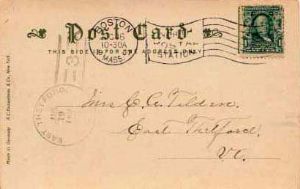 Post Card
THIS SIDE IS FOR THE ADDRESS ONLY
BOSTON
10-30A
MASS.
POSTAL
STATION
EAST THETFORD
19
Made in Germany
Mrs. C. A. Tilden
East Thetford
Vt.